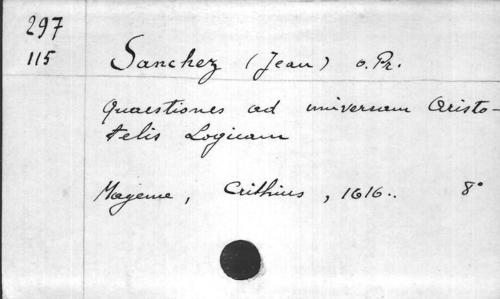 297
115
Sanchez (Jean) o. Pr.
Quaestiones ad universam Aristo-
telis Logicam
Mayence, Crithius, 1616.. 8°